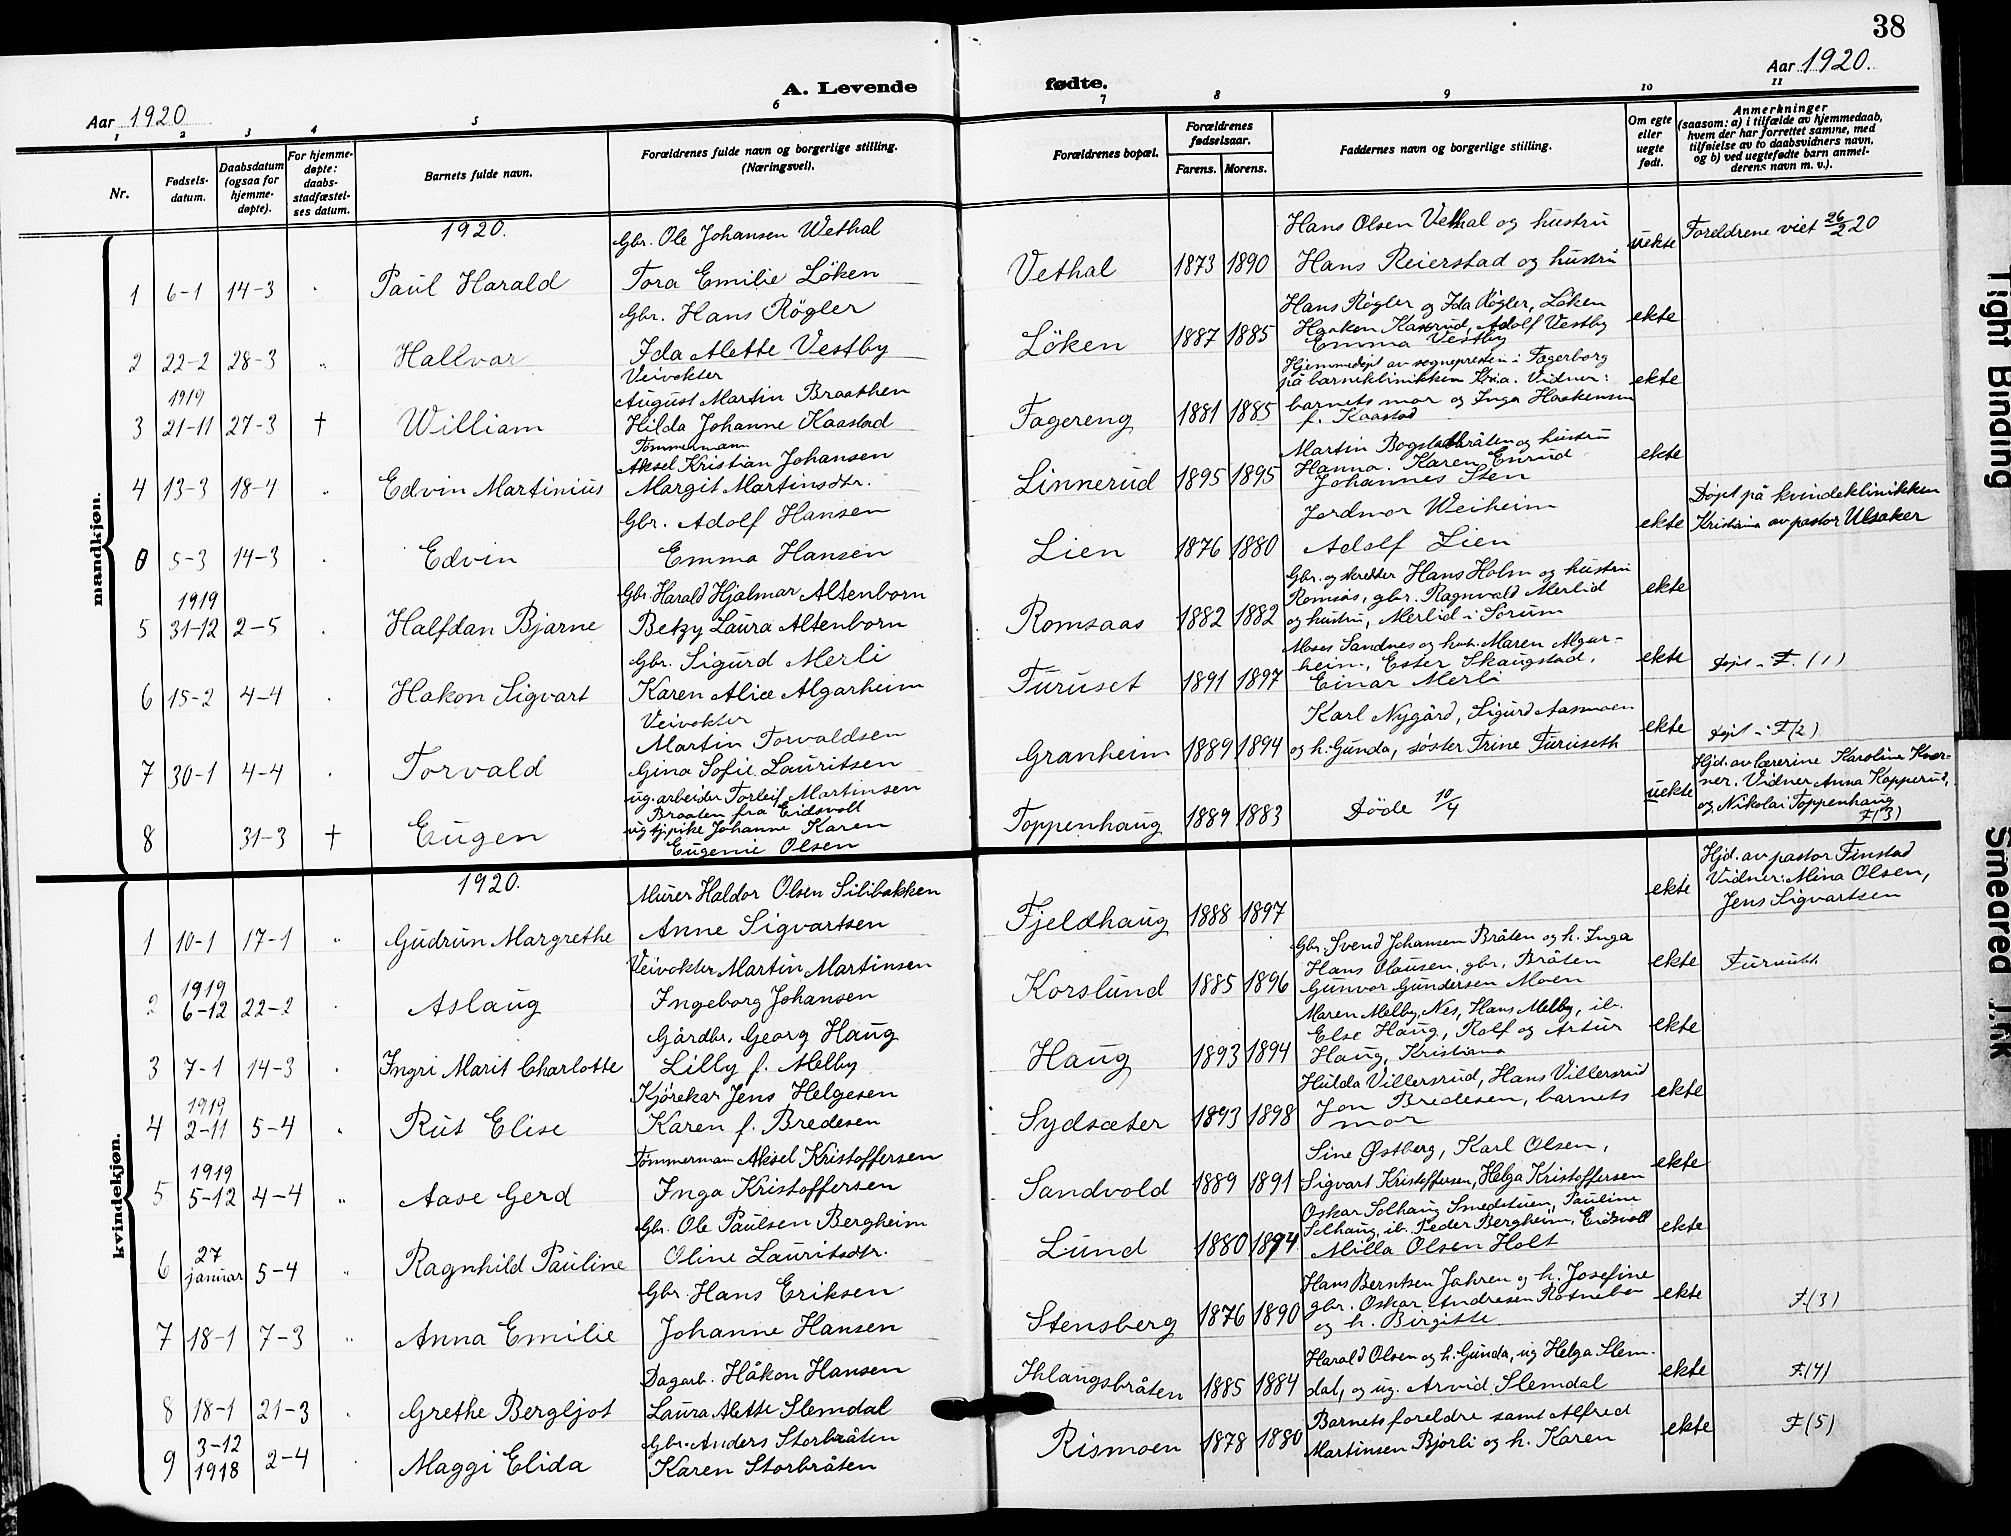 38
Aar 1920
A. Levende fødte.
Aar 1920.
1 2 3 4 5 6 7 8 9 10 11
Nr.
Fødsels-
datum.
Daabsdatum
(ogsaa for
hjemme-
døpte).
For hjemme-
døpte:
daabs-
stadfæstel-
ses datum.
Barnets fulde navn.
Forældrenes fulde navn og borgerlige stilling.
(Næringsvei).
Forældrenes bopæl.
Forældrenes
fødselsaar.
Farens. Morens.
Faddernes navn og borgerlige stilling.
Om egte
eller
uegte
født.
Anmerkninger
(saasom: a) i tilfælde av hjemmedaab,
hvem der har forrettet samme, med
tilføielse av to daabsvidners navn,
og b) ved uegtefødte barn anmel-
derens navn m. v.).
mandkjøn.
1920.
1 6-1 14-3 . Paul Harald
Gbr. Ole Johansen Wethal
Tora Emilie Löken
Vethal 1873 1890
Hans Olsen Vethal og hustru
Hans Reierstad og hustru
uekte
Foreldrene viet 26/2 20
2 22-2 28-3 " Hallvar
Gbr. Hans Rögler
Ida Alette Vestby
Löken 1887 1885
Hans Rögler og Ida Rögler, Löken
Haaken Kaxrud, Adolf Vestby
Emma Vestby
ekte
1919
3 21-11 27-3 † William
Veivokter
August Martin Braathen
Hilda Johanne Kaastad
Fagereng 1881 1885
Hjemmedöpt av sognepresten i Fagerborg
på barneklinikken Kr.a. Vidner:
barnets mor og Inga Haakensen
f. Kaastad
ekte
4 13-3 18-4 " Edvin Martinius
Tömmermann
Aksel Kristian Johansen
Margit Martinsdtr.
Linnerud 1895 1895
Martin Bogstadbråten og hustru
Hanna. Karen Enrud
Johannes Sten
ekte
0 5-3 14-3 . Edvin
Gbr. Adolf Hansen
Emma Hansen
Lien 1876 1880
Jordmor Weiheim
Adolf Lien
ekte
Döpt på kvindeklinikken
Kristiania av pastor Ulsaker
1919
5 31-12 2-5 . Halfdan Bjarne
Gbr. Harald Hjalmar Altenborn
Betzy Laura Altenborn
Romsaas 1882 1882
Gbr. og skredder Hans Holm og hustru
Romsås, gbr. Ragnvald Merlid
og hustru, Merlid i Sorum
ekte
6 15-2 4-4 . Hakon Sigvart
Gbr. Sigurd Merli
Karen Alice Algarheim
Furuset 1891 1897
Moses Sandnes og hust. Maren Algar-
heim, Ester Skaugstad,
Einar Merli
ekte
Döpt i F. (1)
7 30-1 4-4 . Torvald
Veivokter
Martin Torvaldsen
Gina Sofie Lauritsen
Granheim 1889 1894
Karl Nygård, Sigurd Aasmoen
og h. Gunda, söster Trine Furuseth
ekte
Döpt i F (2)
8 31-3 † Eugen
ug. arbeider Torleif Martinsen
Braaten fra Eidsvoll
ug pike Johanne Karen
Eugenie Olsen
Toppenhaug 1889 1883
Döde 10/4
uekte
Hjd. av lærerine Karoline Kvær-
ner. Vidner Anna Kopperud,
og Nikolai Toppenhaug
F (3)
kvindekjøn.
1920.
1 10-1 17-1 " Gudrun Margrethe
Murer Haldor Olsen Silibakken
Anne Sigvartsen
Fjeldhaug 1888 1897
ekte
Hjd. av pastor Finstad
Vidner: Mina Olsen,
Jens Sigvartsen
1919
2 6-12 22-2 . Aslaug
Veivokter Martin Martinsen
Ingeborg Johansen
Korslund 1885 1896
Gbr. Svend Johansen Bråten og h. Inga
Hans Clausen, gbr. Bråten
Gunvor Gundersen Moen
ekte
Furuset.
3 7-1 14-3 . Ingri Marit Charlotte
Gårdbr. Georg Haug
Lilly f. Melby
Haug 1893 1894
Maren Melby, Nes, Hans Melby, ib.
Else Haug, Rolf og Artur
Haug, Kristiania
ekte
1919
4 2-11 5-4 . Rut Elise
Kjörekar Jens Helgesen
Karen f. Bredesen
Sydsæter 1893 1898
Hulda Villersrud, Hans Villersrud
Jon Bredesen, barnets
mor
ekte
1919
5 5-12 4-4 " Aase Gerd
Tömmerman Aksel Kristoffersen
Inga Kristoffersen
Sandvold 1889 1891
Sine Østberg, Karl Olsen,
Sigvart Kristoffersen, Helga Kristoffersen
ekte
6 27 januar 5-4 " Ragnhild Pauline
Gbr. Ole Paulsen Bergheim
Oline Lauritsdtr.
Lund 1880 1894
Oskar Solhaug Smedstuen, Pauline
Solhaug, ib. Peder Bergheim, Eidsvoll
Milla Olsen Holt
ekte
7 18-1 7-3 " Anna Emilie
Gbr. Hans Eriksen
Johanne Hansen
Stensberg 1876 1890
Hans Berntsen Jahren og h. Josefine
gbr. Oskar Andresen Rotnebo
og h. Birgitte
ekte
F. (3)
8 18-1 21-3 . Grethe Bergljot
Dagarb. Håkon Hansen
Laura Alette Slemdal
Ihlangsbråten 1885 1884
Harald Olsen og h. Gunda, ug Helga Slem-
dal, og ug. Arvid Slemdal
ekte
F. (4)
9 3-12 1918 2-4 . Maggi Elida
Gbr. Anders Storbråten
Karen Storbråten
Rismoen 1878 1880
Barnets foreldre samt Alfred
Martinsen Bjorli og h. Karen
ekte
F (5)
Tight Binding
Smeared Ink